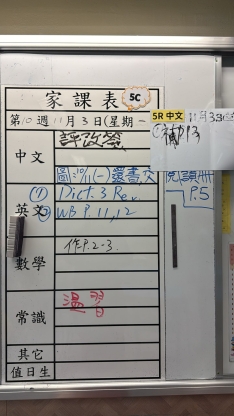 家課表 5C
第10週11月3日(星期一
5R 中文 11月3日
補P.3
中文 評改簽
圖:10/11(一)還書交 閱讀冊 P.5
英文 ① Dict. 3 Rev.
② WB P.11,12
數學 作P.2-3
常識 溫習
其它
值日生